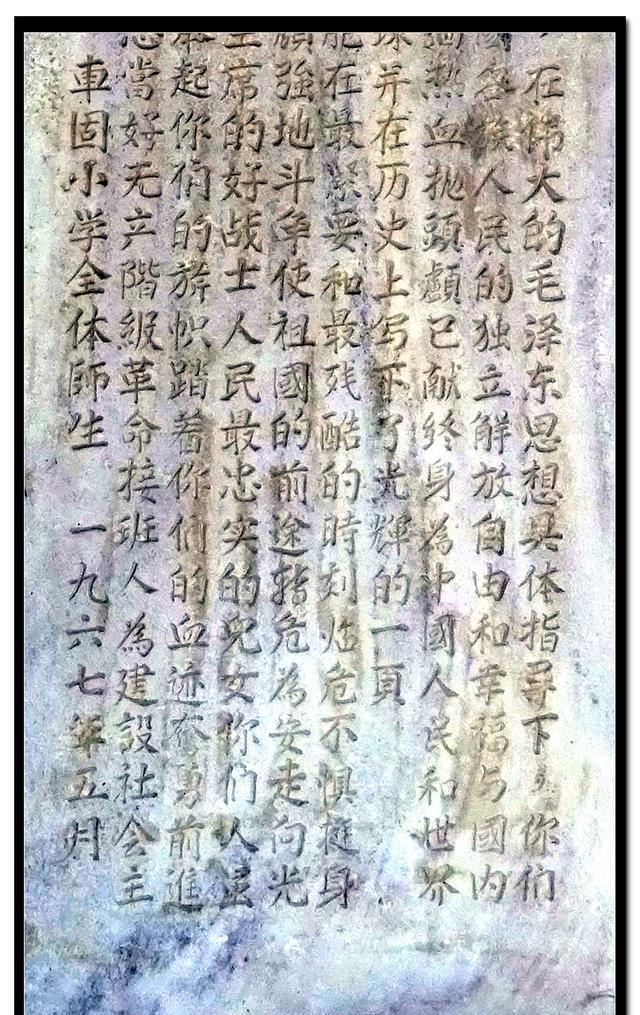 在偉大的毛泽东思想具体指导下你们
國各族人民的独立解放自由和幸福与國内
热血抛頭顱已献终身為中國人民和世界
并在历史上写下了光輝的一頁
能在最緊要和最残酷的時刻临危不惧挺身
頑強地斗争使祖國的前途转危為安走向光
主席的好战士人民最忠实的兒女你们人虽
起你们的旂帜踏着你们的血迹奋勇前進
志當好无产階級革命接班人為建設社会主
車固小学全体師生 一九六七年五月